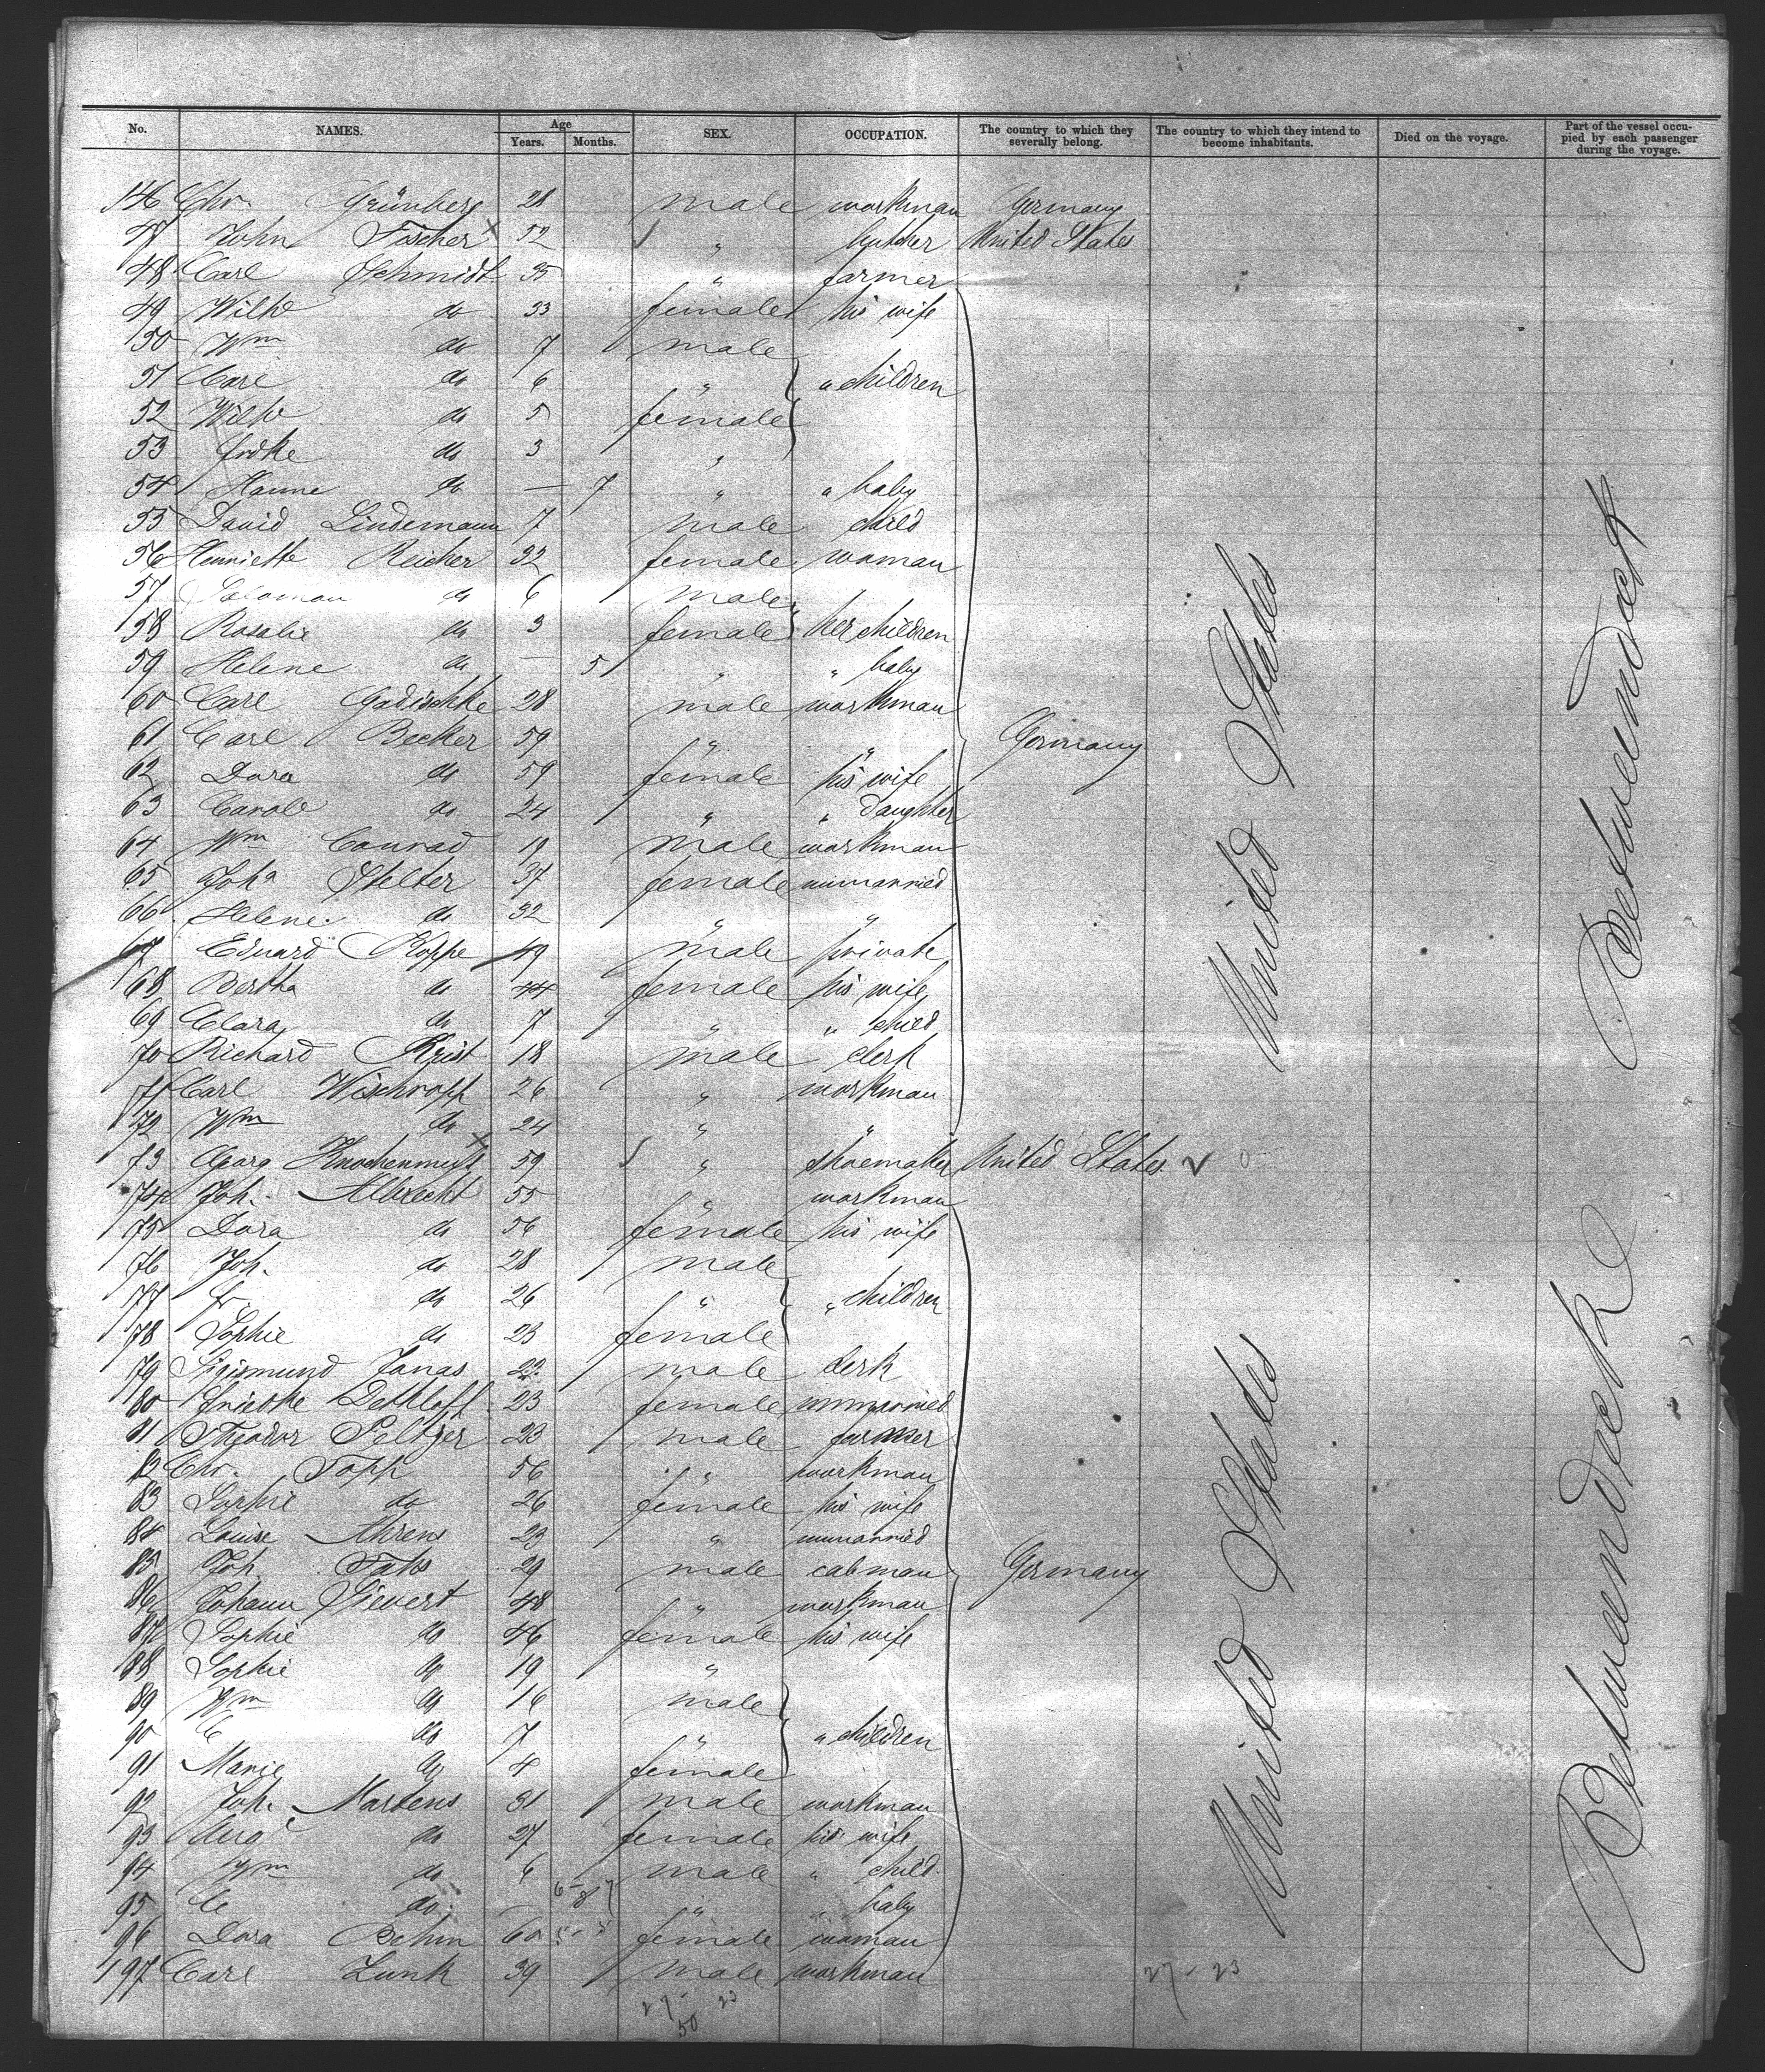 No. NAMES. Age Years. Months. SEX. OCCUPATION. The country to which they severally belong. The country to which they intend to become inhabitants. Died on the voyage. Part of the vessel occupied by each passenger during the voyage.
146 Chr. Grünberg 28 male workman Germany
47 John Fischer 52 " butcher United States
48 Carl Schmidt 35 " farmer
49 Wilh do 33 female his wife
150 Wm do 7 male
51 Carl do 6 " " children
52 Wilh do 5 female
53 Frdke do 3 "
54 Hanne do — 7 " " baby
55 David Lindemann 7 male child
56 Henriette Reicher 32 female woman
57 Salomon do 6 male
58 Rosalie do 3 female her children
59 Helene do — 5 " " baby
60 Carl Gadischke 28 male workman
61 Carl Becker 59 " " Germany
62 Dora do 59 female his wife
63 Carol do 24 " " daughter
64 Wm Conrad 19 male workman
65 Joha Stelter 37 female unmarried
66 Helene do 32 " "
67 Eduard Koppe 49 male private
68 Bertha do 44 female his wife
69 Clara do 7 " " child
70 Richard Krist 18 male clerk
71 Carl Wischropp 26 " workman
72 Wm do 24 " "
73 Georg 59 " shoemaker United States
74 Joh. Albrecht 55 " workman
75 Dora do 56 female his wife
76 Joh. do 28 male
77 Fr. do 26 " " children
78 Sophie do 23 female
79 Sigismund Jonas 22 male clerk
80 Friedke Dethloff 23 female unmarried
81 Theodor Peltzer 23 male farmer
82 Chr. Topp 56 " workman
83 Sophie do 26 female his wife
84 Louise Ahrens 23 " unmarried
85 Joh. 29 male cabman Germany
86 Johann Sievert 48 " workman
87 Sophie do 46 female his wife
88 Sophie do 19 "
89 Wm do 16 male
90 C do 7 " " children
91 Marie do 4 female
92 Joh. Martens 31 male workman
93 do 27 female his wife
94 Wm do 6 male " child
95 C do — 8 " " baby
96 Dora Behm 60 female woman
197 Carl Lunk 39 male workman 27 - 23
27 - 23
50
United States
United States
Betweendeck
Betweendeck